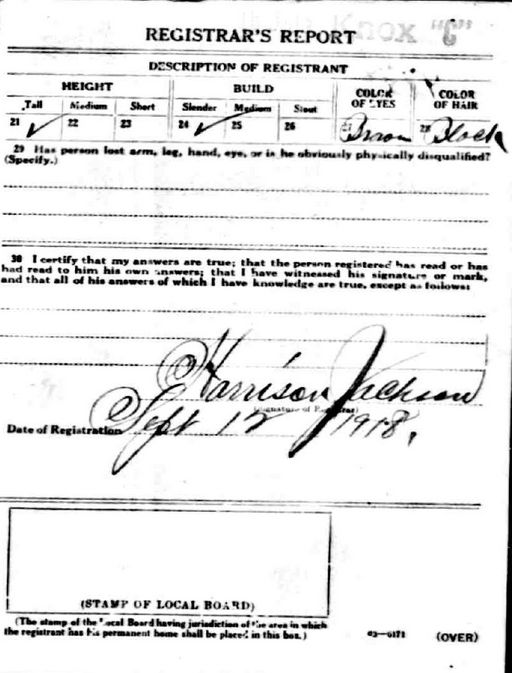 Knox "C"
REGISTRAR'S REPORT
DESCRIPTION OF REGISTRANT
HEIGHT BUILD COLOR OF EYES COLOR OF HAIR
Tall Medium Short Slender Medium Stout
21 ✓ 22 23 24 ✓ 25 26 27 Brown 28 Black
29 Has person lost arm, leg, hand, eye, or is he obviously physically disqualified?
(Specify.)
30 I certify that my answers are true; that the person registered has read or has
had read to him his own answers; that I have witnessed his signature or mark,
and that all of his answers of which I have knowledge are true, except as follows:
Harrison Jackson
(Signature of Registrar)
Date of Registration Sept 12 1918.
(STAMP OF LOCAL BOARD)
(The stamp of the Local Board having jurisdiction of the area in which
the registrant has his permanent home shall be placed in this box.)
03-6171 (OVER)